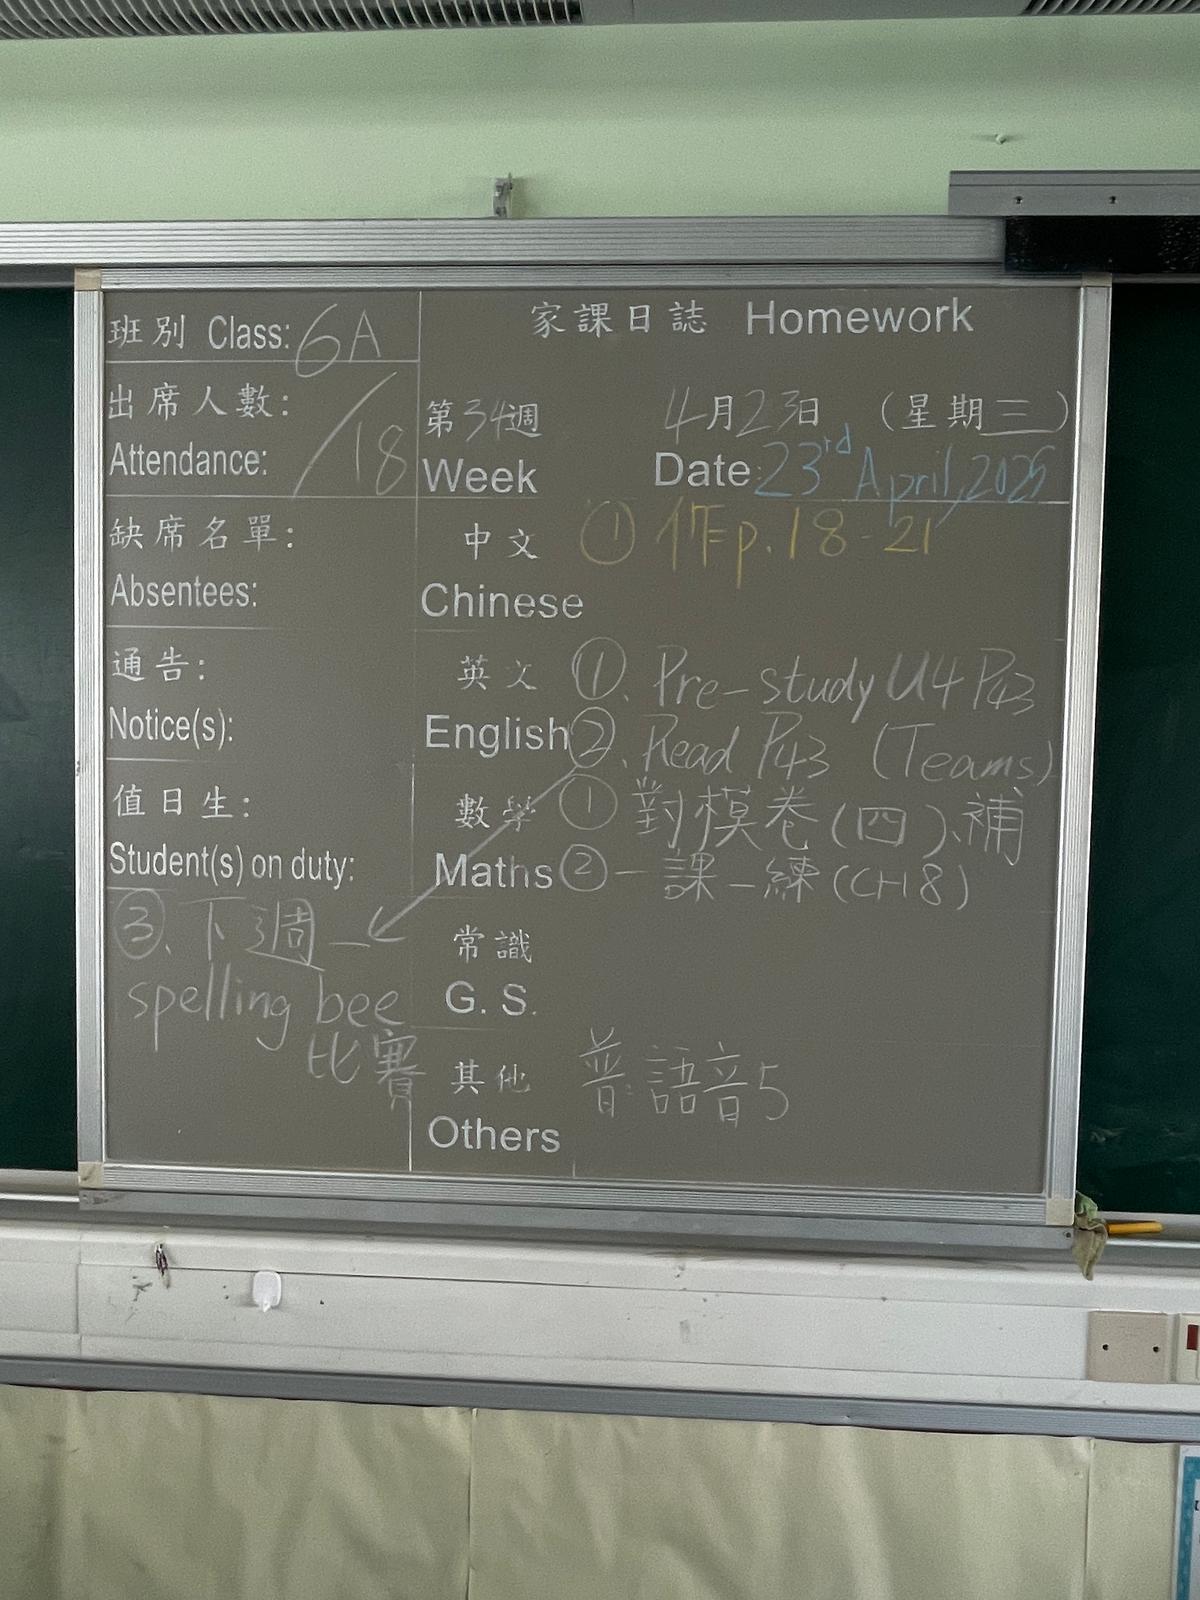 家課日誌 Homework
班別 Class: 6A
出席人數:
Attendance: /18
缺席名單:
Absentees:
通告:
Notice(s):
值日生:
Student(s) on duty:
③、下週
spelling bee
比賽
第34週 4月23日 (星期三)
Week Date: 23rd April, 2025
中文 ① 作p.18-21
Chinese
英文 ①、Pre-study U4 P43
English ②、Read P43 (Teams)
數學 ① 對模卷(四)、補
Maths ② 一課一練(CH8)
常識
G. S.
其他 普:語音5
Others